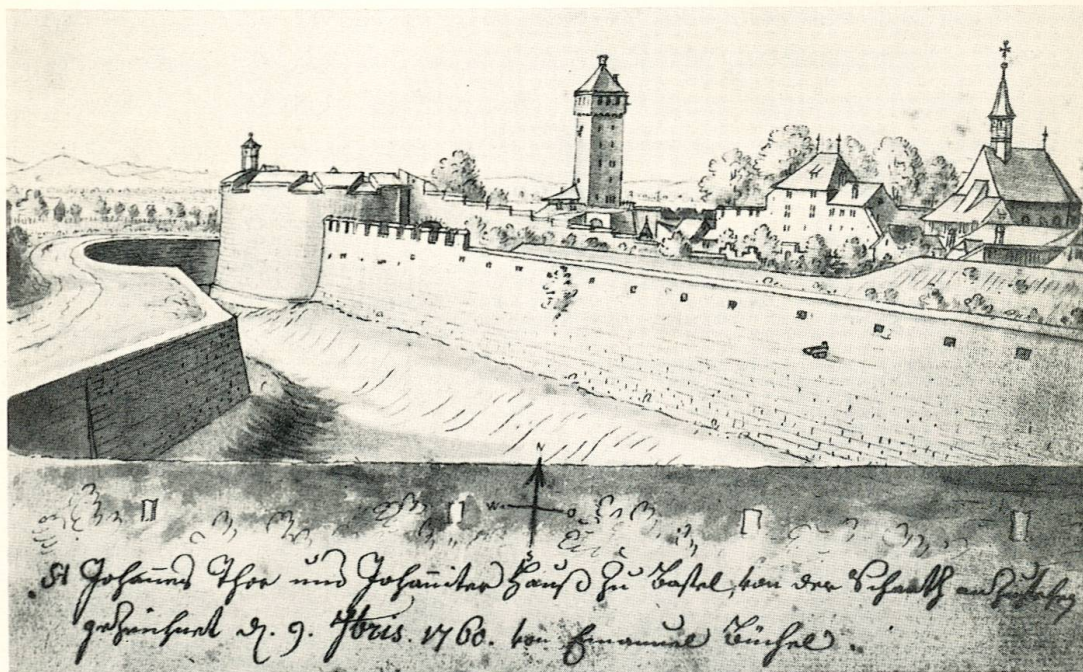 N
W O
S
St Johannes Thor und Johanniter Hauß zu Basel, von der Schantz anzusehen
gezeichnet d. 9. 7bris. 1760. von Emanuel Büchel.